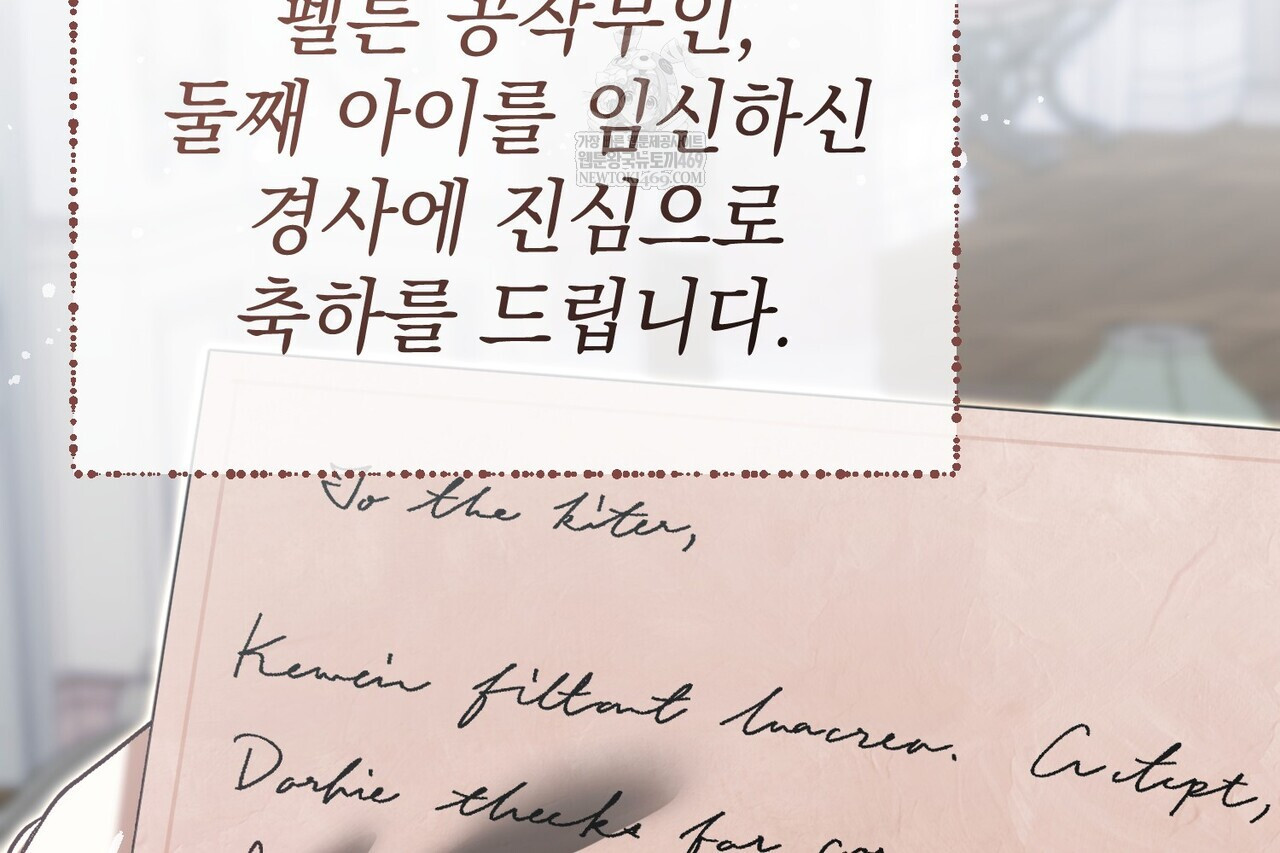 펠튼 공작부인,
둘째 아이를 임신하신
가장 빠른 웹툰제공사이트
웹툰왕국뉴토끼469
NEWTOKI469.COM
경사에 진심으로
축하를 드립니다.
To the kiter,
Kewein filtant
Dorhie theeks for